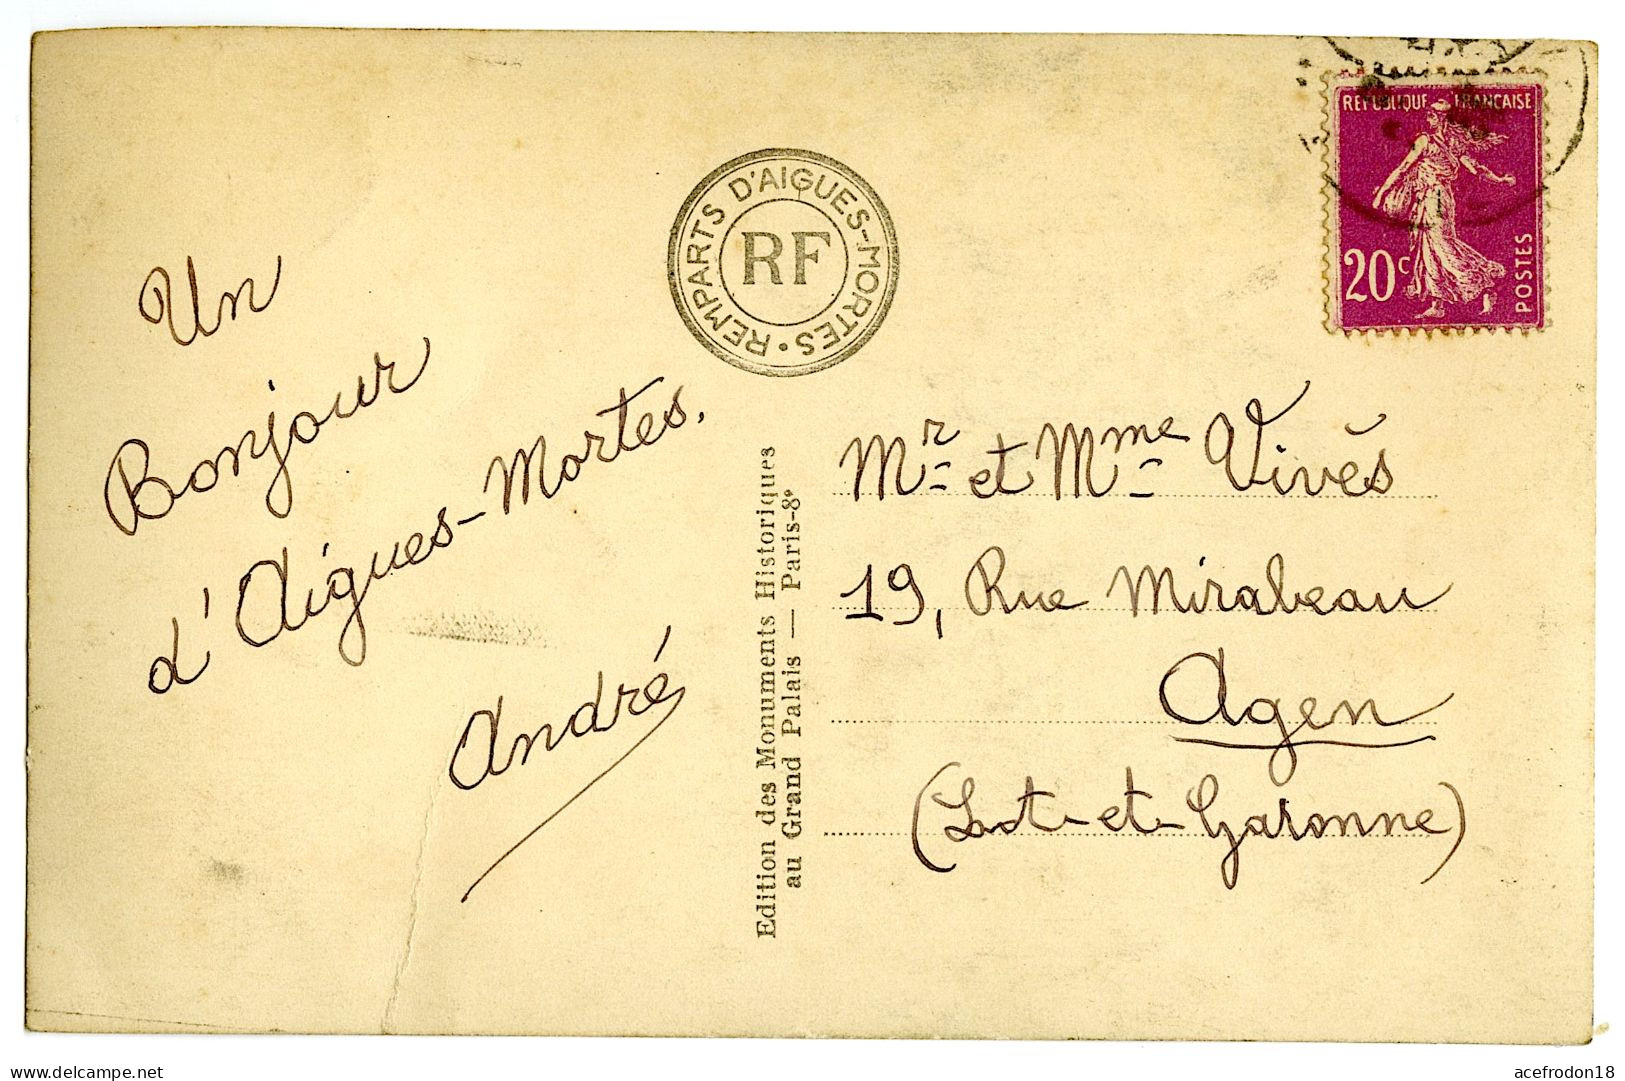 Un
Bonjour
d'Aigues-Mortes.
André
REMPARTS D'AIGUES-MORTES •
RF
Edition des Monuments Historiques
au Grand Palais — Paris-8e
REPUBLIQUE FRANÇAISE
20c
POSTES
Mr et Mme Vivès
19, Rue Mirabeau
Agen
(Lot-et-Garonne)
acefrodon18